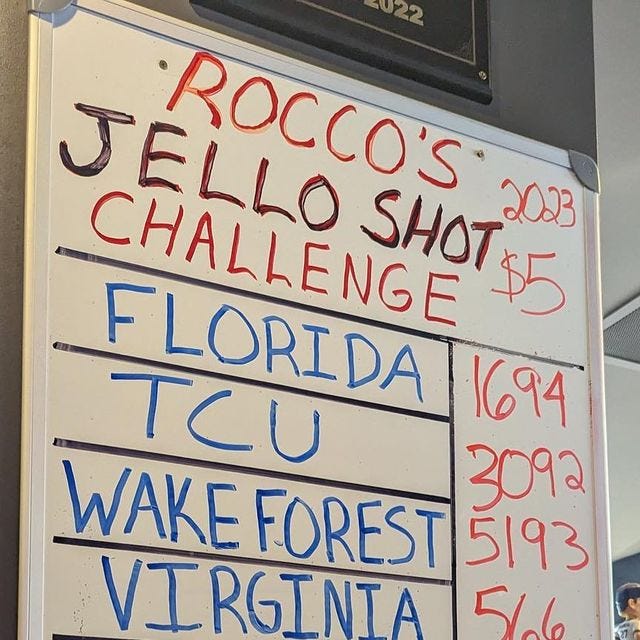 2022
ROCCO'S
JELLO SHOT 2023
CHALLENGE $5
FLORIDA 1694
TCU 3092
WAKE FOREST 5193
VIRGINIA 566